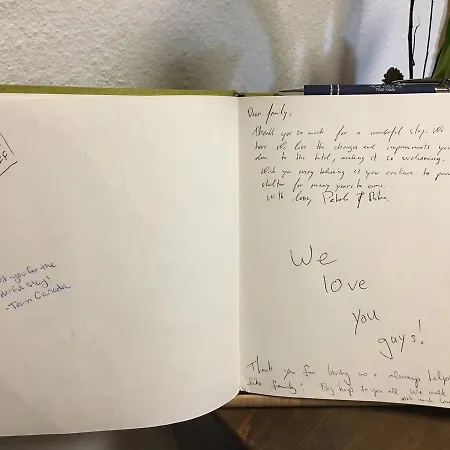 you for the
stay!
-Team Canada
Dear family,
Thank you so much for a wonderful stay. We
have the changes and improvements you
done to the hotel, making it so welcoming.
Wish you every as you continue to
shelter for many years to come.
With love,
We
love
you
guys!
Thank you for loving us & always
like family! Big hugs to you all. We will